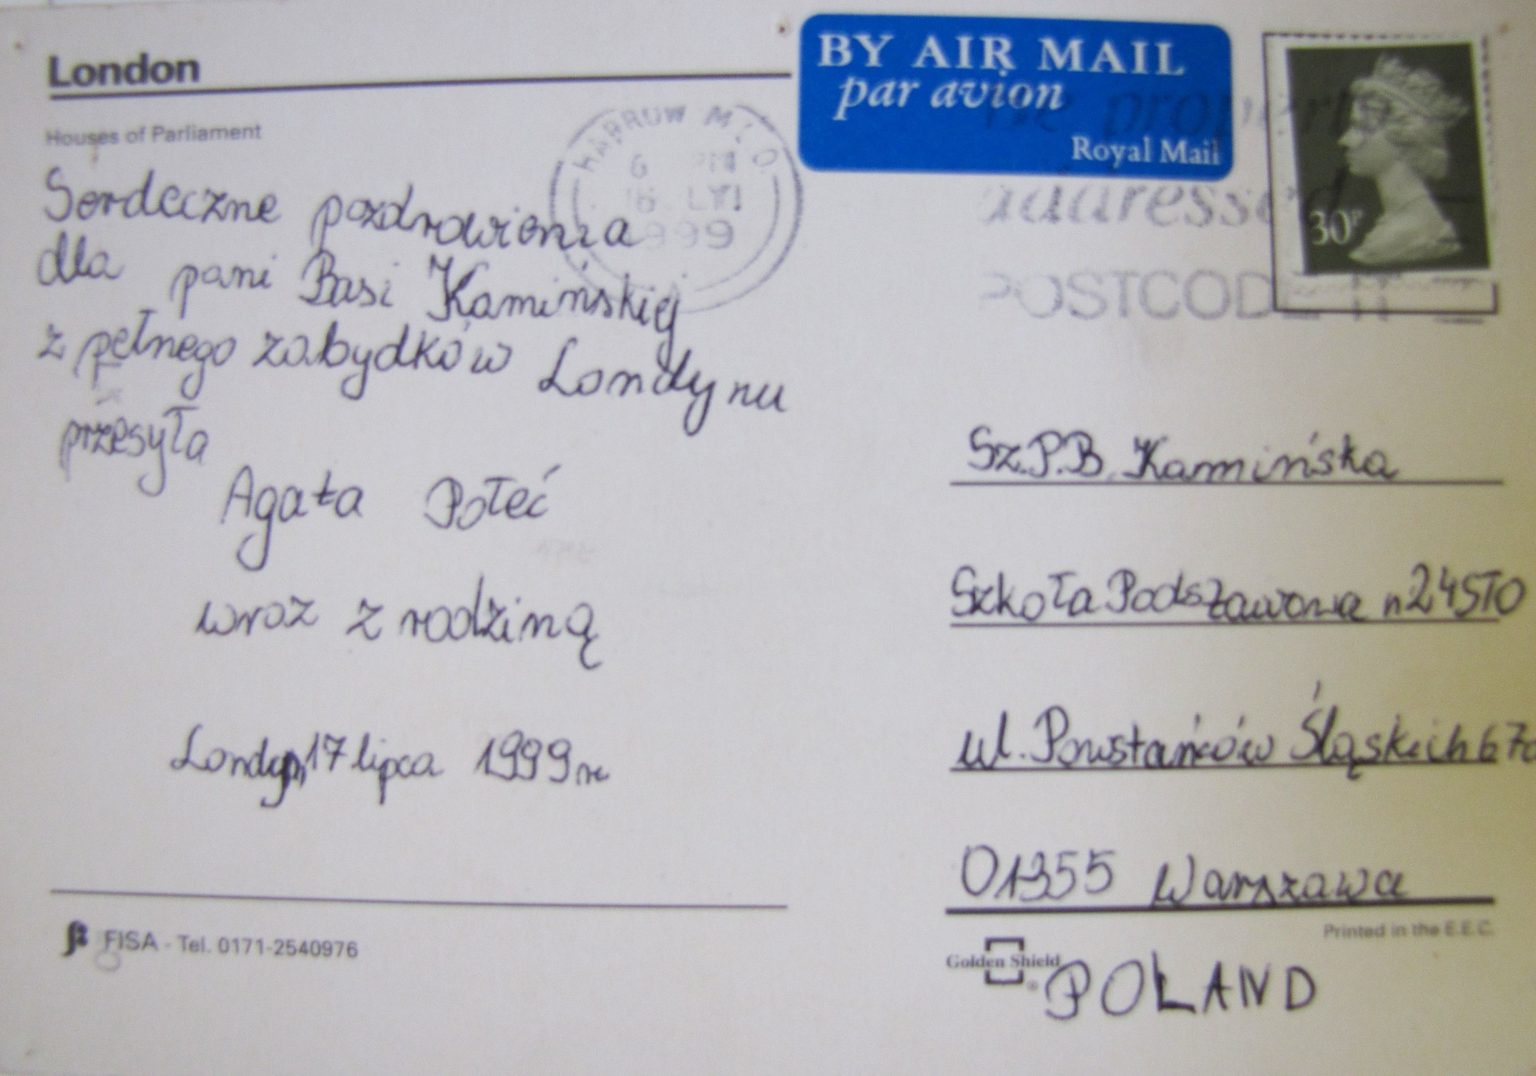 London
Houses of Parliament
Serdeczne pozdrowienia
dla pani Basi Kamińskiej
z pełnego zabydków Londynu
przesyła
Agata Połeć
wraz z rodziną
Londyn, 17 lipca 1999r
FISA - Tel. 0171-2540976
HARROW M.L.O.
6 PM
1999
BY AIR MAIL
par avion
Royal Mail
30P
Be properly
addressed
POSTCODE IT
Sz.P.B. Kamińska
Szkoła Podstawowa n 245TO
ul. Powstańców Śląskich 67a
01355 Warszawa
Printed in the E.E.C.
Golden Shield
POLAND